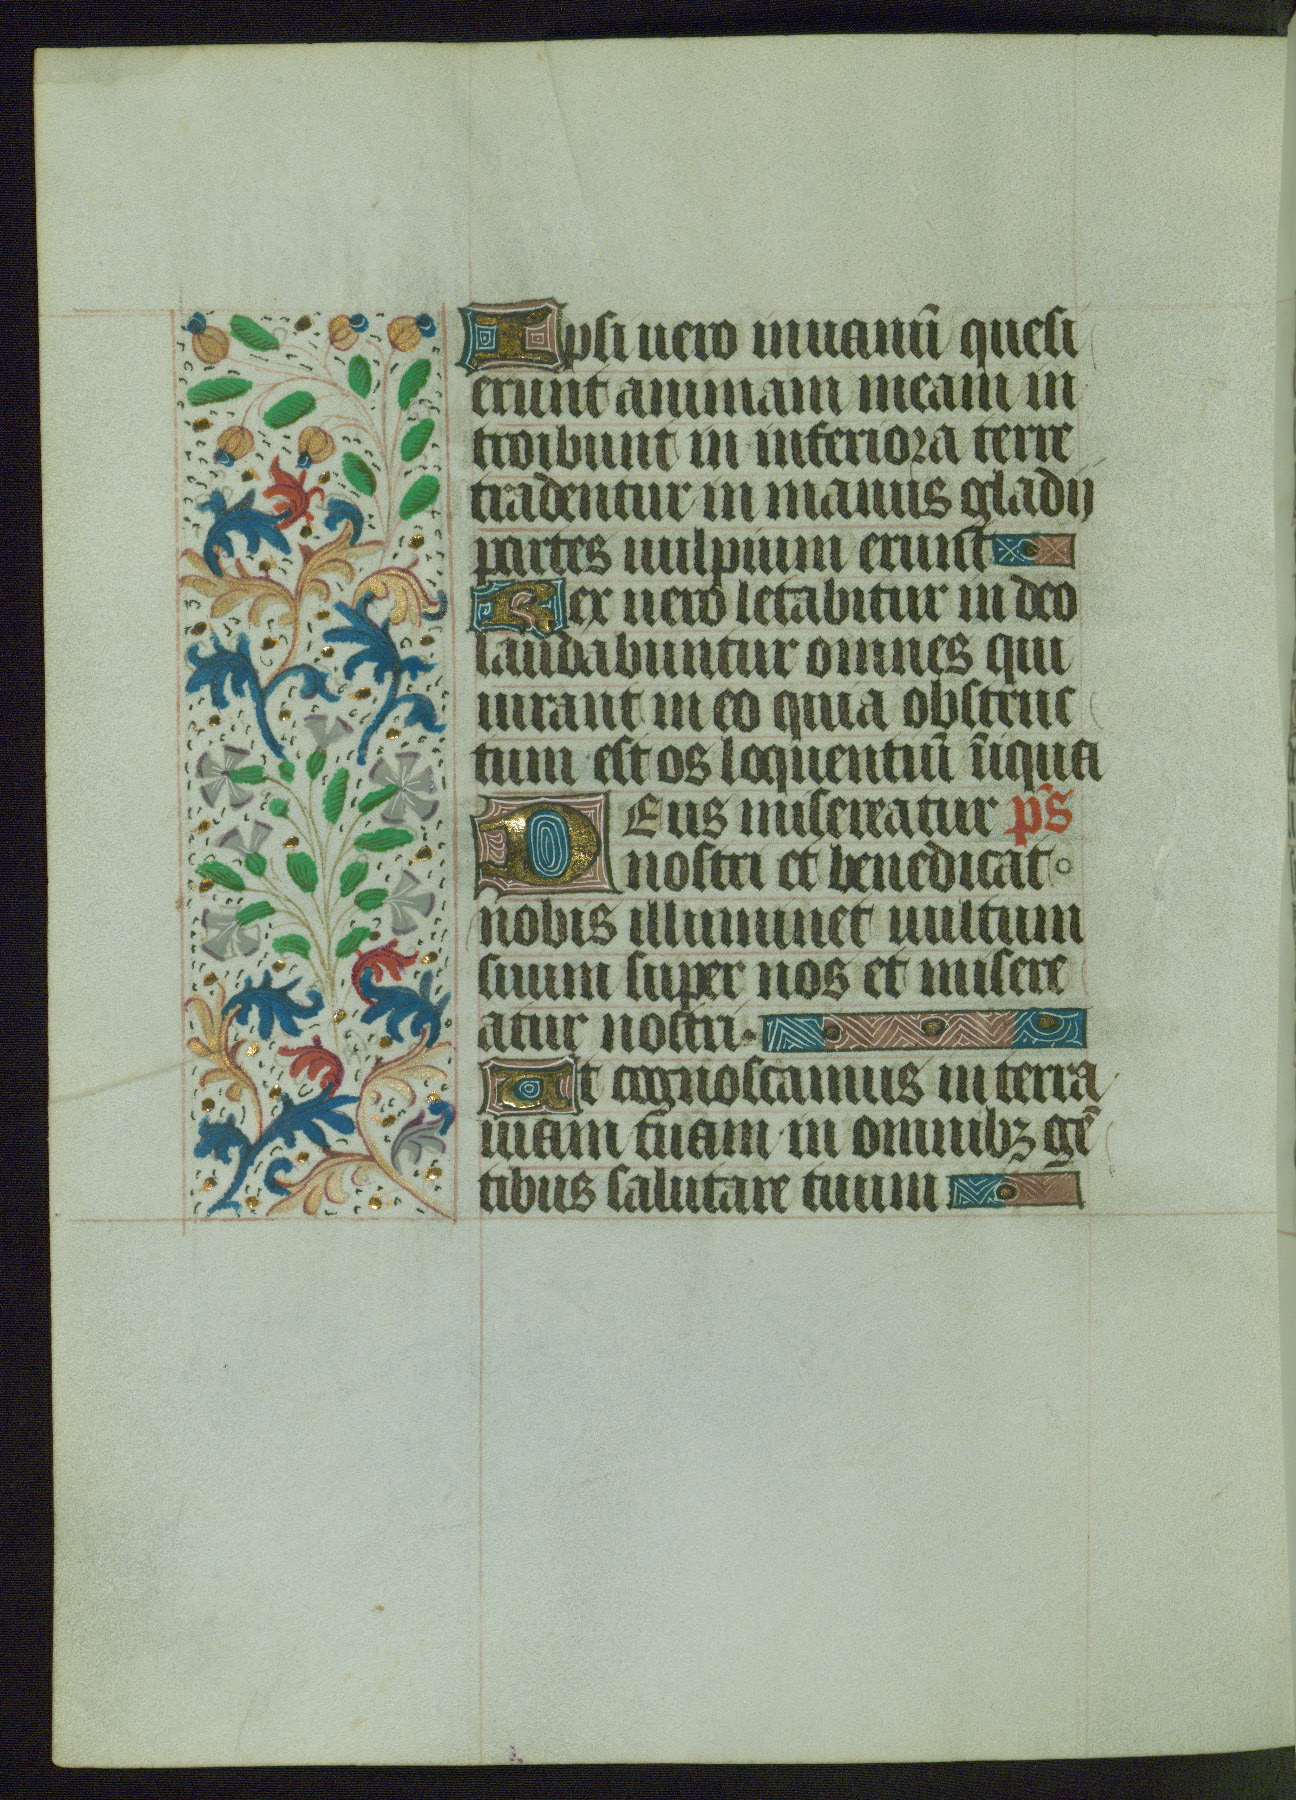 Ipsi uero inuanū quesi
erunt animam meam in
troibunt in inferiora terre
tradentur in manus gladij
partes uulpium erunt
Rex uero letabitur in deo
laudabuntur omnes qui
iurant in eo quia obstruc
tum est os loquentiū īiqua
Deus misereatur p̄s
nostri et benedicat
nobis illuminet uultum
suum super nos et misere
atur nostri.
Ut cognoscamus in terra
uiam tuam in omnibꝫ gē
tibus salutare tuum